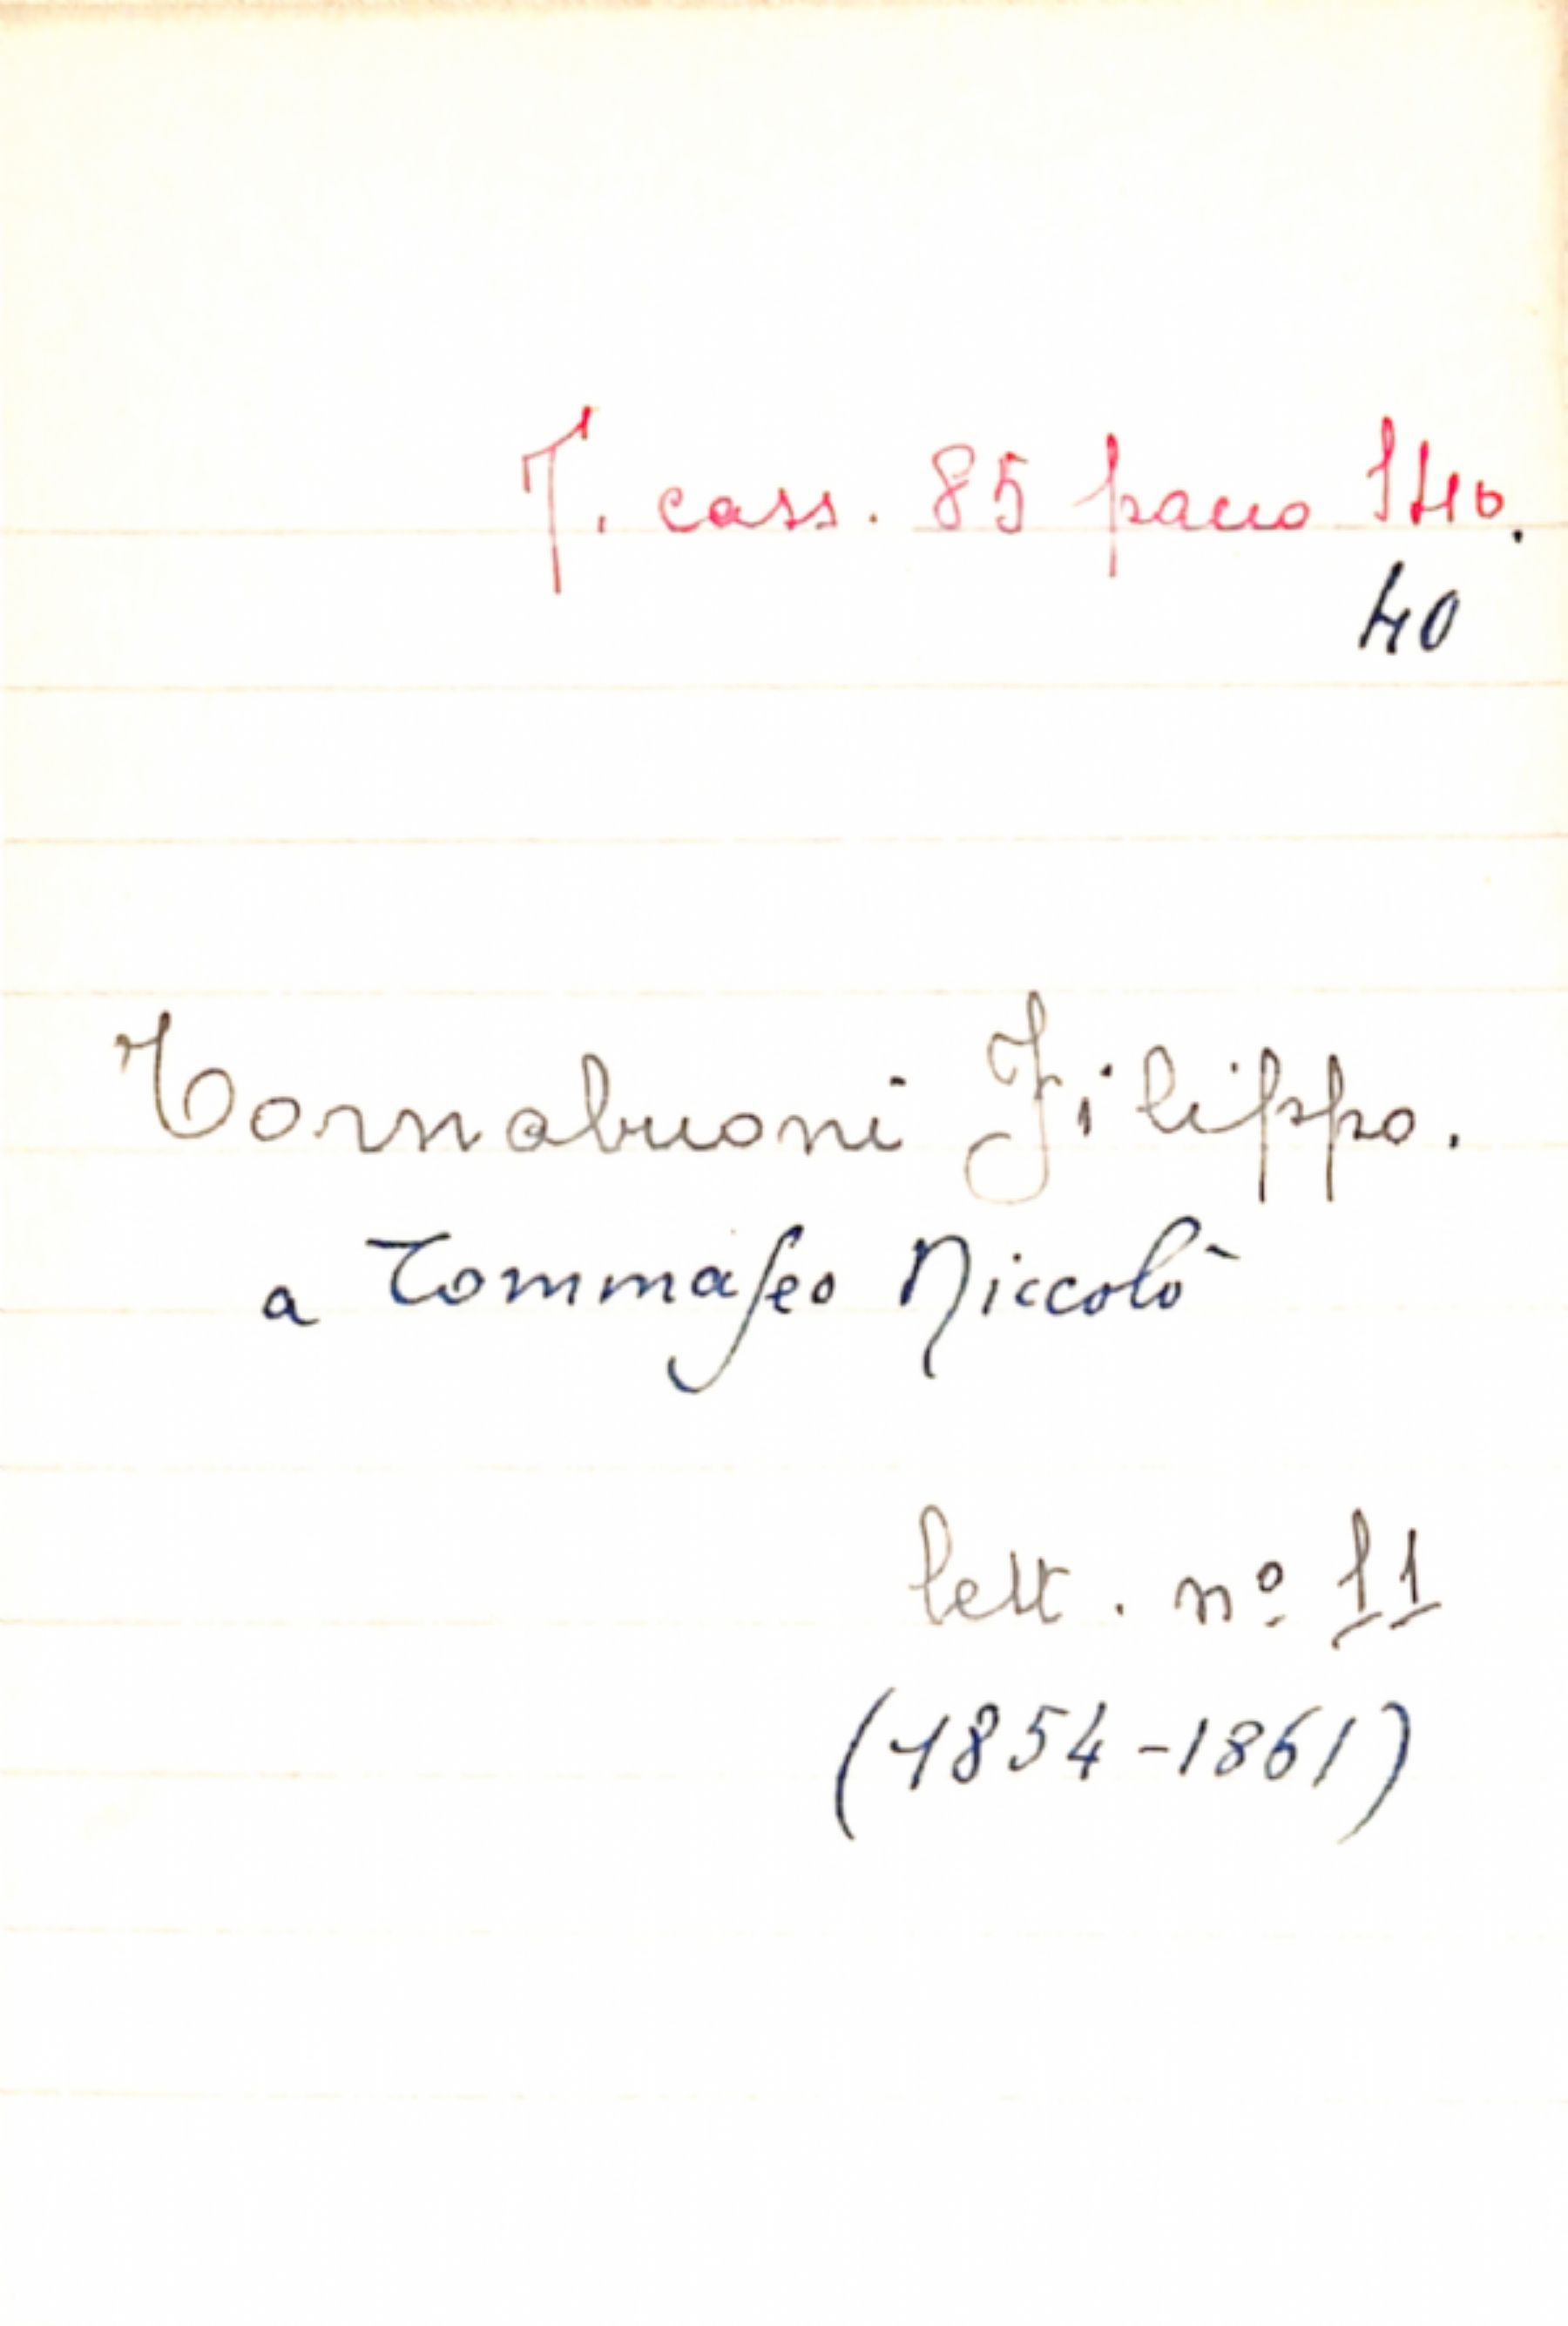 T. cass. 85 pacco
40
Tornabuoni Filippo.
a Tommaseo Niccolò
lett. nº 11
(1854-1861)